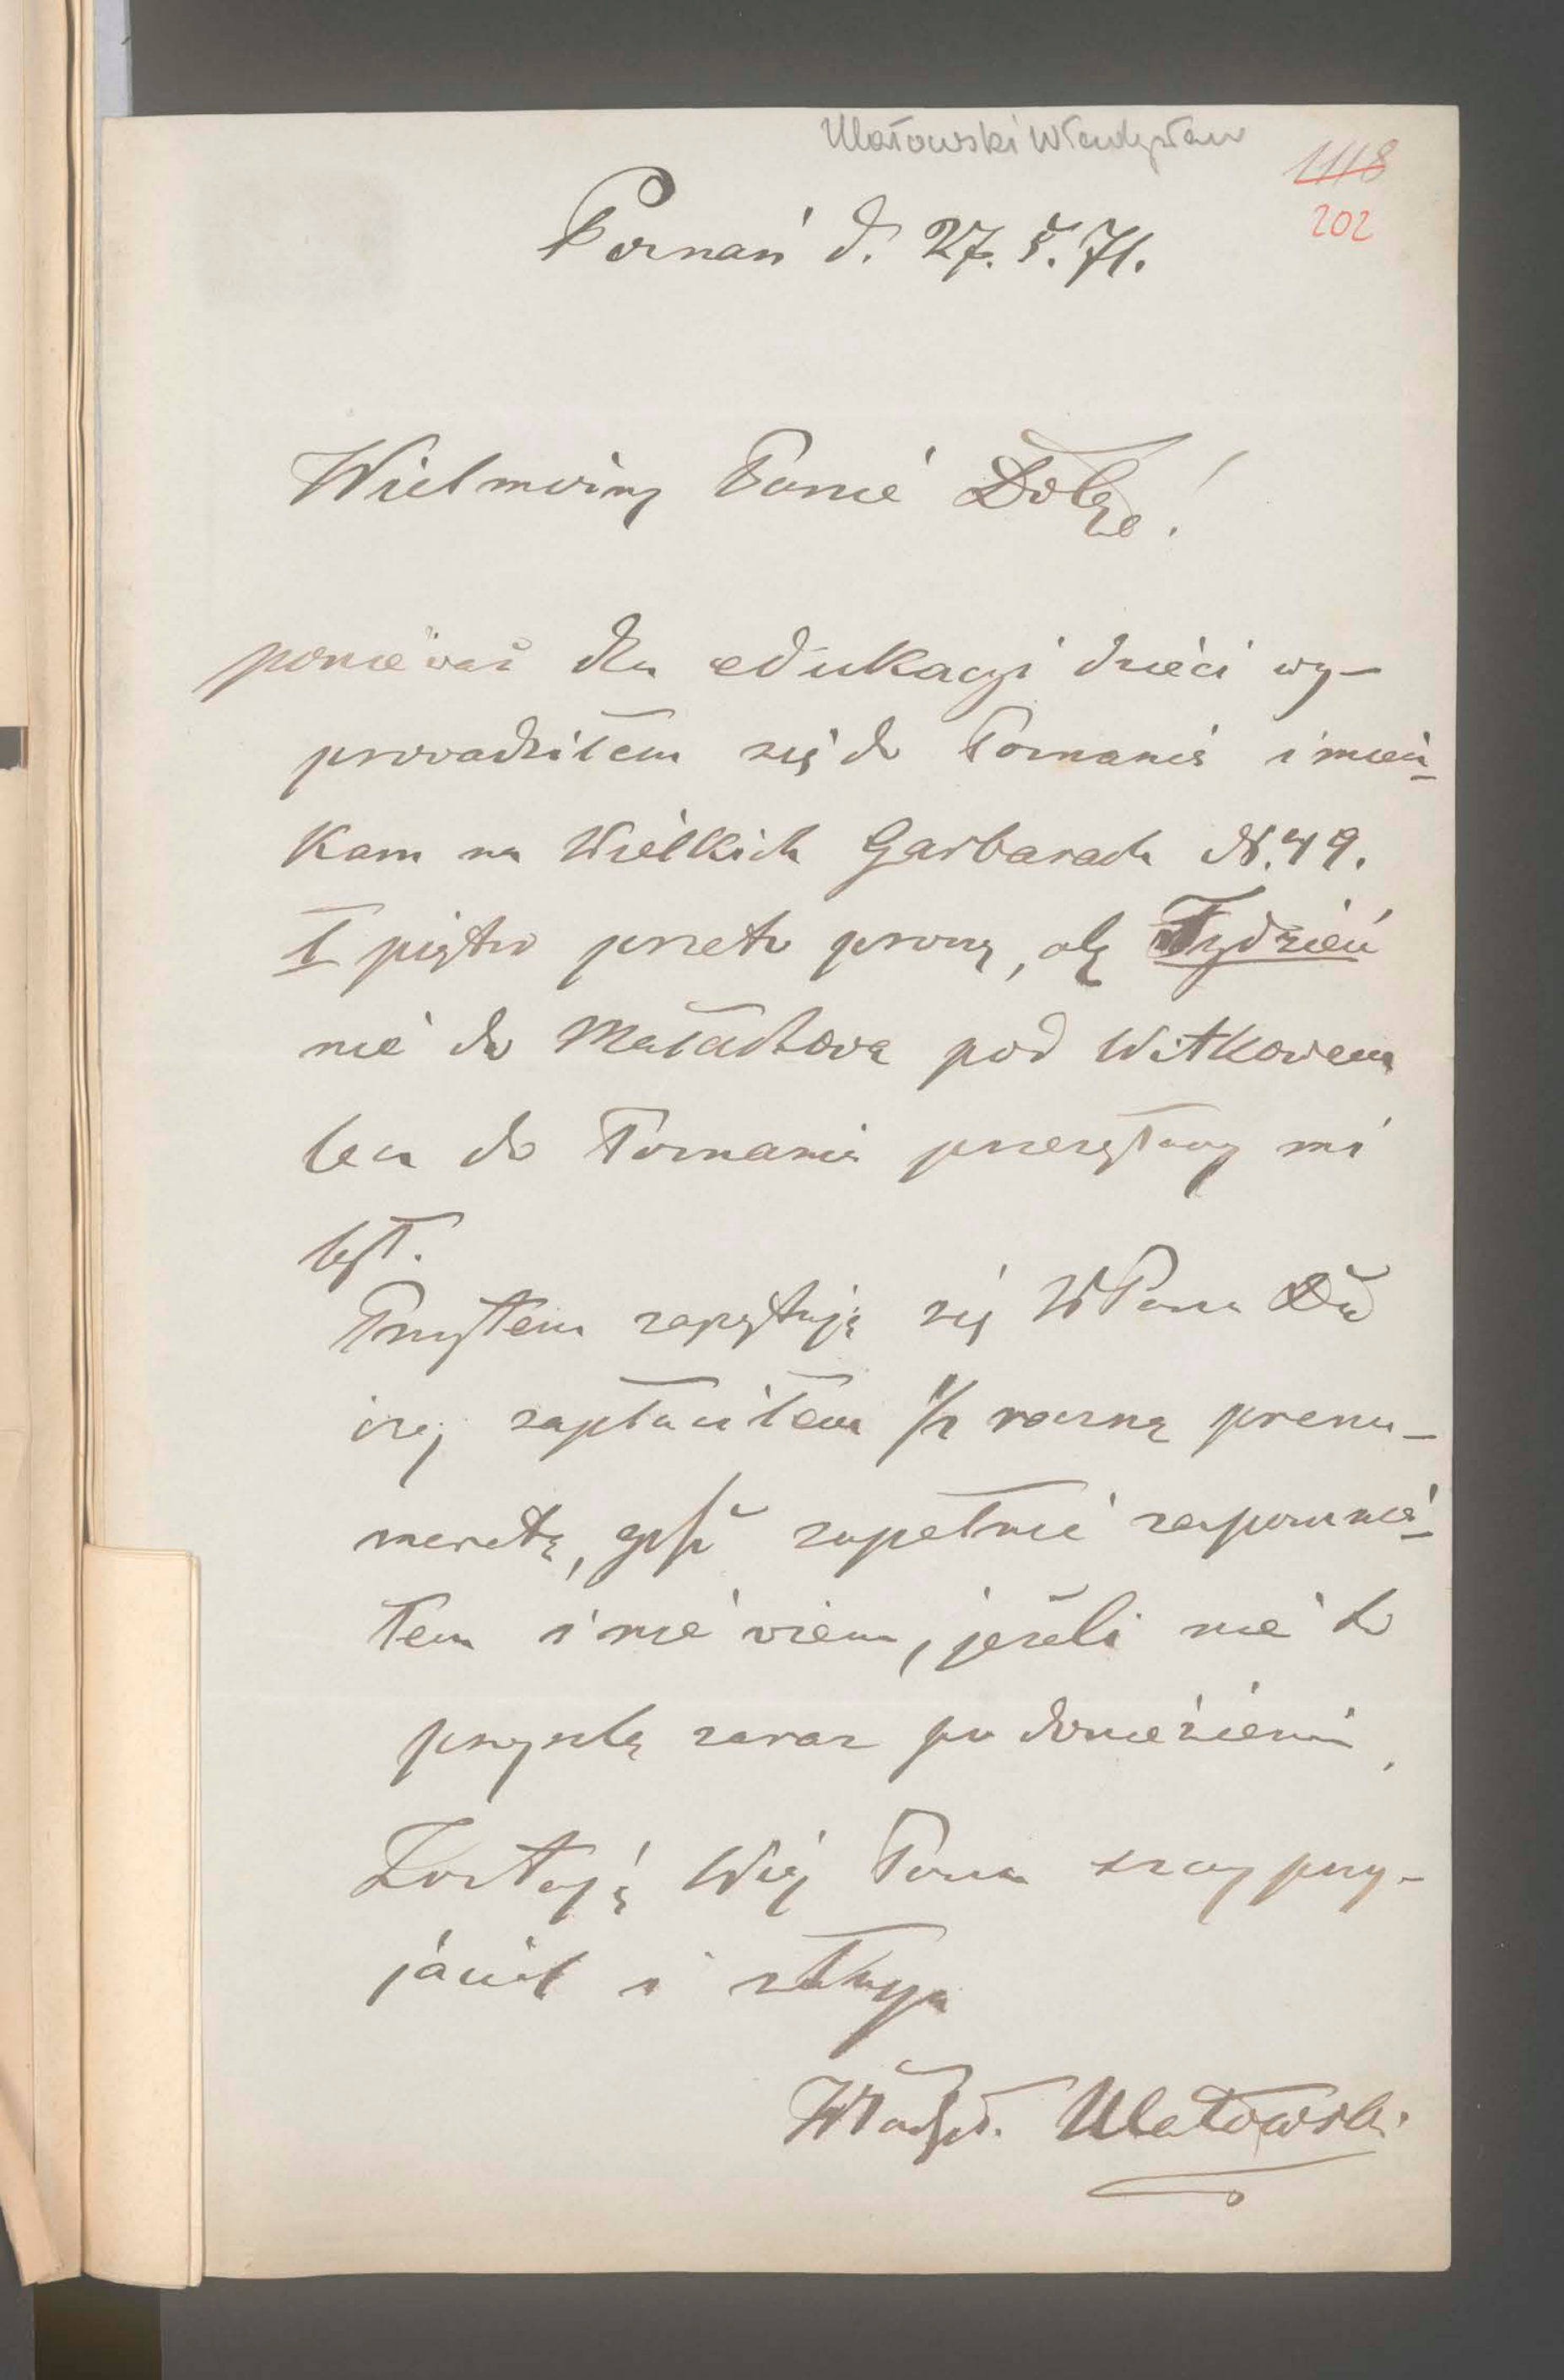 Ulatowski Władysław
1118
202
Poznań d. 27. 5. 71.
Wielmożny Panie Dobrze!
ponieważ dla edukacyi dzieci wy-
prowadziłem się do Poznania i miesz-
kam na Wielkich Garbarach N. 49.
I piętro przeto proszę, aby Tydzień
nie do Małachowa pod Witkowem
lecz do Poznania przesyłany mi
był.
Przytem zapytuję się WPana
czy zapłaciłem 1/2 roczną prenu-
meratę, gdyż zupełnie zapomnia-
łem i nie wiem, jeżeli nie to
przyszlę zaraz po doniesieniu.
Zostaję Pana szczery przy-
jaciel i sługa
Władysł. Ulatowski